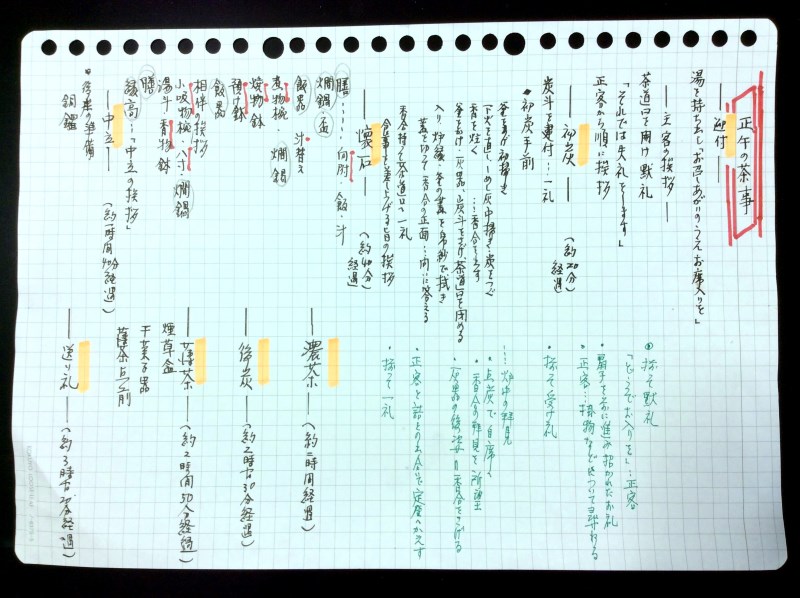 正午の茶事
―迎付―
湯を持ち出し「お召しあがりのうえお席入りを」
―主客の挨拶―
茶道口を開け 黙礼
「それでは失礼をします」
正客から順に挨拶
―初炭― (約20分)経過
炭斗を運付…一礼
・初炭手前
釜をあげ初掃き
下火を直し しめし灰 中掃き 炭をつぐ
香を炷く …香合を出す
釜をかけ 灰器、炭斗をさげ 茶道口を閉める
入り 炉縁・釜の蓋を帛紗で拭き
蓋を切って 香合の正面…問に答える
香合持て 茶道口へ一礼
食事を差し上げる旨の挨拶
―懐石― (約40分)経過
膳……向附・飯・汁
燗鍋 盃
飯器 汁替え
煮物椀・燗鍋
焼物鉢
預け鉢
飯器
相伴の挨拶
小吸物椀・八寸・燗鍋
湯斗 香物鉢
膳
縁高…中立の挨拶
―中立― (約1時間40分経過)
・後座の準備
銅鑼
・揃って黙礼
「どうぞお入りを」…正客
・扇子を前に進み 招かれたお礼
・正客…掛物などについて尋ねる
・揃って受け礼
…炉中の拝見
・点炭で自席へ
・香合の拝見を所望
・灰器の後 次 香合をさげる
・正客と詰とり出会いで定座へかえす
・揃って一礼
―濃茶― (約二時間経過)
―後炭― (約2時間30分経過)
―薄茶― (約2時間50分経過)
煙草盆
干菓子器
薄茶点前
―送り礼― (約3時間20分経過)